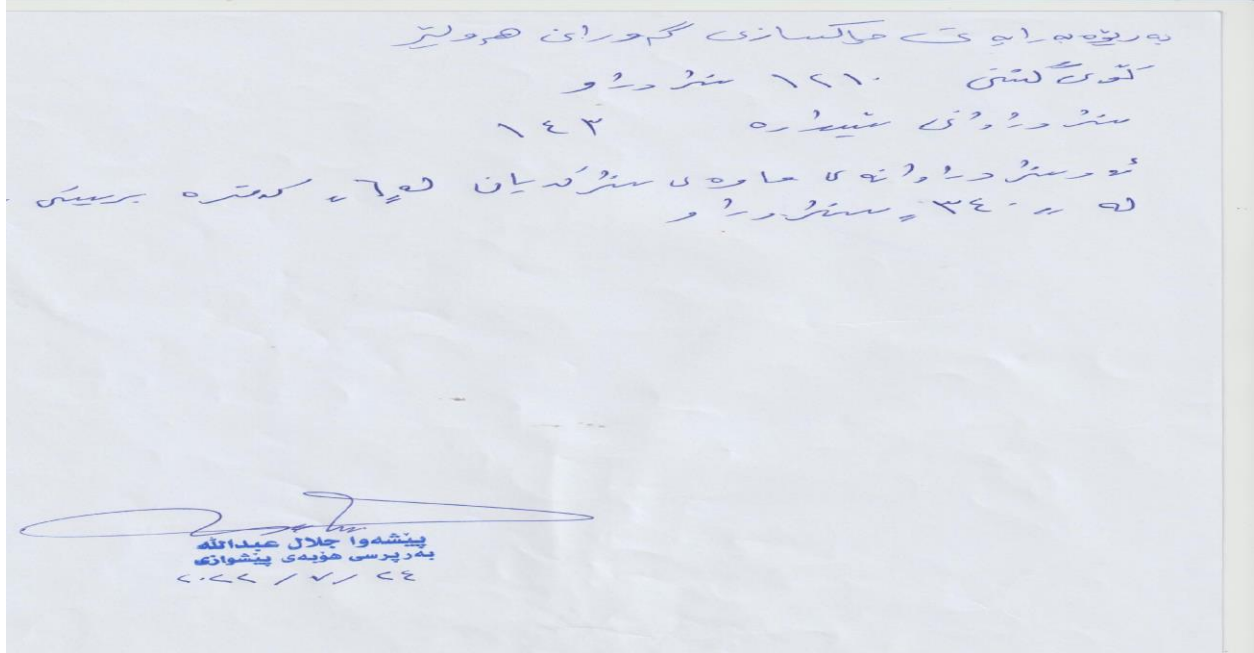 بەڕێوەبەرایەتی چاکسازی گەورانی هەولێر
کۆی گشتی ١٢١٠ سزا دراو
سزا دراوانی تیرۆر ١٤٣
ئەو سزا دراوانەی ماوەی سزاکەیان لە ٦ کەمترە بریتی
لە ٣٤٠ سزا دراو
پێشەوا جلال عبدالله
بەرپرسی هۆبەی پێشوازی
٢٠٢٢ / ٧ / ٢٤